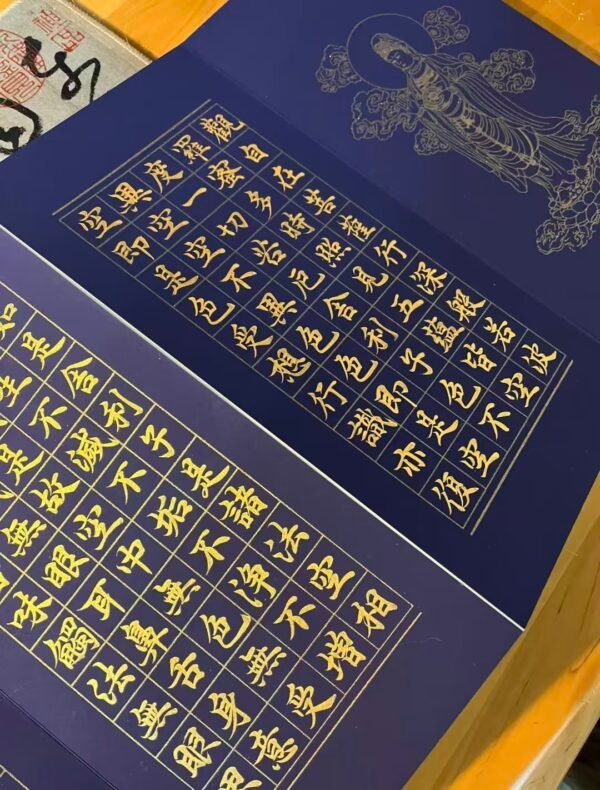 觀自在菩薩行深般若波
羅蜜多時照見五蘊皆空
度一切苦厄舍利子色不
異空空不異色色即是空
空即是色受想行識亦復
如是舍利子是諸法空相
生不滅不垢不净不增
是故空中無色無受
無眼耳鼻舌身意
味觸法無眼界